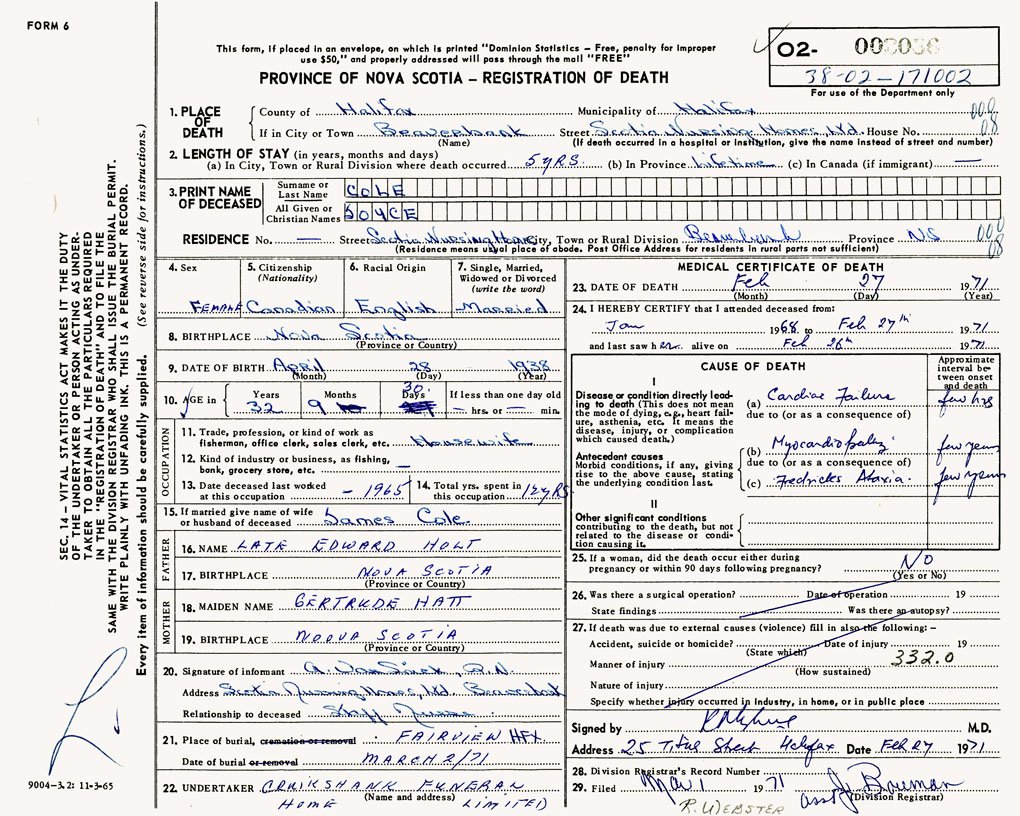 FORM 6
This form, if placed in an envelope, on which is printed "Dominion Statistics – Free, penalty for improper
use $50," and properly addressed will pass through the mail "FREE"
PROVINCE OF NOVA SCOTIA – REGISTRATION OF DEATH
02-
38-02-171002
For use of the Department only
SEC. 14 – VITAL STATISTICS ACT MAKES IT THE DUTY
OF THE UNDERTAKER OR PERSON ACTING AS UNDER-
TAKER TO OBTAIN ALL THE PARTICULARS REQUIRED
IN THE "REGISTRATION OF DEATH" AND TO FILE THE
SAME WITH THE DIVISION REGISTRAR WHO SHALL ISSUE THE BURIAL PERMIT.
WRITE PLAINLY WITH UNFADING INK. THIS IS A PERMANENT RECORD.
Every item of information should be carefully supplied. (See reverse side for instructions.)
1. PLACE OF DEATH
County of Halifax Municipality of Halifax 000
If in City or Town Beaverbank Street Scotia Nursing Homes, Ltd. House No. 08
(Name) (If death occurred in a hospital or institution, give the name instead of street and number)
2. LENGTH OF STAY (in years, months and days)
(a) In City, Town or Rural Division where death occurred 5 yrs (b) In Province Lifetime (c) In Canada (if immigrant) —
3. PRINT NAME OF DECEASED
Surname or Last Name COLE
All Given or Christian Names JOYCE
RESIDENCE No. — Street Scotia Nursing Home City, Town or Rural Division Beaverbank Province NS 000 08
(Residence means usual place of abode. Post Office Address for residents in rural parts not sufficient)
4. Sex 5. Citizenship (Nationality) 6. Racial Origin 7. Single, Married, Widowed or Divorced (write the word)
FEMALE Canadian English Married
8. BIRTHPLACE Nova Scotia
(Province or Country)
9. DATE OF BIRTH April 28 1938
(Month) (Day) (Year)
10. AGE in Years Months Days If less than one day old
32 9 30 — hrs. or — min.
OCCUPATION
11. Trade, profession, or kind of work as
fisherman, office clerk, sales clerk, etc. Housewife
12. Kind of industry or business, as fishing,
bank, grocery store, etc. —
13. Date deceased last worked at this occupation – 1965 14. Total yrs. spent in this occupation 12 yrs
15. If married give name of wife
or husband of deceased James Cole
FATHER
16. NAME LATE EDWARD HOLT
17. BIRTHPLACE NOVA SCOTIA
(Province or Country)
MOTHER
18. MAIDEN NAME GERTRUDE HATT
19. BIRTHPLACE NOOVA SCOTIA
(Province or Country)
20. Signature of informant R.N.
Address Scotia Nursing Homes, Ltd Beaverbank
Relationship to deceased Staff Nurse
21. Place of burial, cremation or removal FAIRVIEW HFX
Date of burial or removal MARCH 2/71
22. UNDERTAKER CRUIKSHANK FUNERAL
(Name and address)
HOME LIMITED
9004-3.2: 11-3-65
MEDICAL CERTIFICATE OF DEATH
23. DATE OF DEATH Feb 27 1971
(Month) (Day) (Year)
24. I HEREBY CERTIFY that I attended deceased from:
Jan 1968 to Feb 27th 1971
and last saw her alive on Feb 26th 1971
CAUSE OF DEATH
Approximate interval between onset and death
I
Disease or condition directly lead-
ing to death (This does not mean
the mode of dying, e.g., heart fail-
ure, asthenia, etc. It means the
disease, injury, or complication
which caused death.)
(a) Cardiac Failure few hrs
due to (or as a consequence of)
Antecedent causes
Morbid conditions, if any, giving
rise to the above cause, stating
the underlying condition last.
(b) few years
due to (or as a consequence of)
(c) Fredricks Ataxia. few years
II
Other significant conditions
contributing to the death, but not
related to the disease or condi-
tion causing it.
25. If a woman, did the death occur either during
pregnancy or within 90 days following pregnancy? NO
(Yes or No)
26. Was there a surgical operation? Date of operation 19
State findings Was there an autopsy?
27. If death was due to external causes (violence) fill in also the following: –
Accident, suicide or homicide? Date of injury 19
(State which)
Manner of injury 332.0
(How sustained)
Nature of injury
Specify whether injury occurred in industry, in home, or in public place
Signed by M.D.
Address 25 Titus Street Halifax Date FEB 27 1971
28. Division Registrar's Record Number
29. Filed Mar 1 1971 asst J Bowman
(Division Registrar)
R. WEBSTER